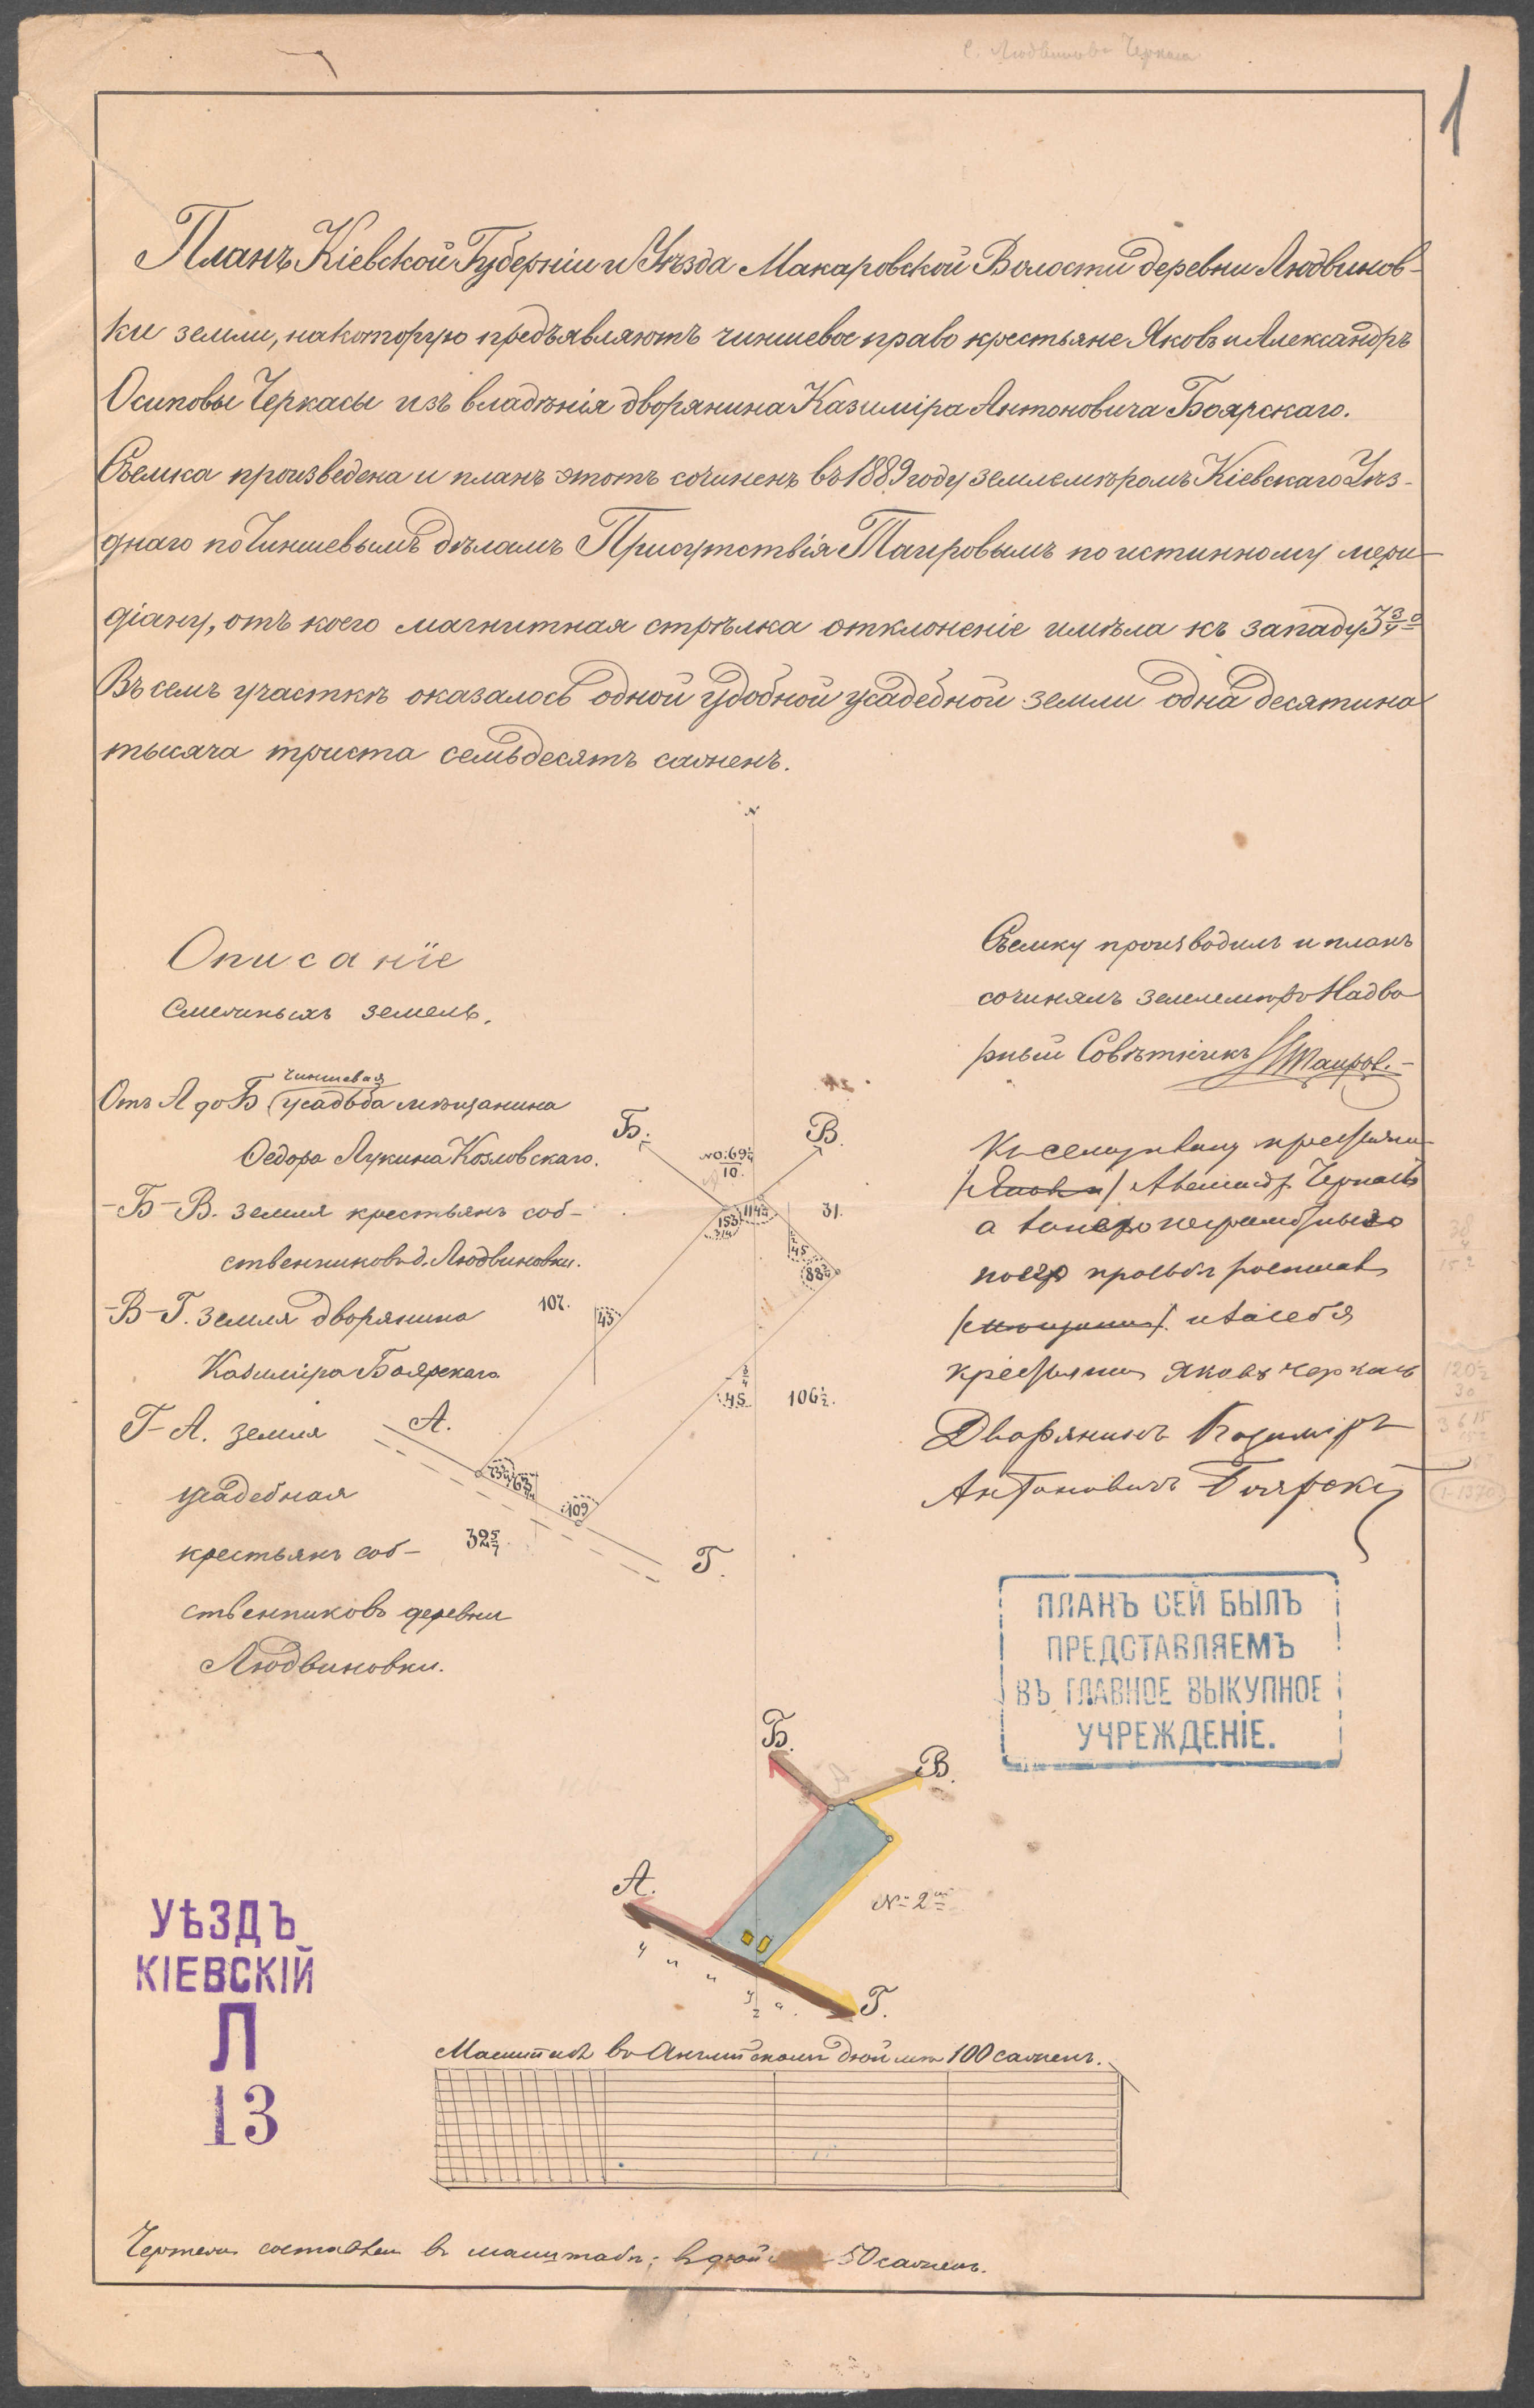 С. Людвиновка Черкасы
1
Планъ Кіевской Губерніи и Уѣзда Макаровской Волости деревни Людвинов-
ки земли, на которую предъявляютъ чиншевое право крестьяне Яковъ и Александръ
Осиповы Черкасы изъ владѣнія дворянина Казиміра Антоновича Боярскаго.
Съемка произведена и планъ этотъ сочиненъ въ 1889 году землемѣромъ Кіевскаго Уѣз-
днаго по Чиншевымъ дѣламъ Присутствія Таировымъ по истинному мери-
діану, отъ коего магнитная стрѣлка отклоненіе имѣла къ западу 3 3/4°
Въ семъ участкѣ оказалось одной удобной усадебной земли одна десятина
тысяча триста семьдесятъ саженъ.
N
Описаніе
смежныхъ земель.
Отъ А до Б чиншевая усадьба мѣщанина
Федора Лукина Козловскаго.
-Б-В. земля крестьянъ соб-
ственниковъ д. Людвиновки.
-В-Г. земля дворянина
Казиміра Боярскаго
Г-А. земля
усадебная
крестьянъ соб-
ственниковъ деревни
Людвиновки.
Съемку производилъ и планъ
сочинялъ землемѣръ Надво
рный Совѣтникъ Таировъ.
Къ сему плану
Александръ Черкасъ
а
по его просьбѣ
и за себя
Яковъ Черкасъ
Дворянинъ Казиміръ
Антоновичъ Боярскій
Б.
В.
NO:69 1/4
10.
31.
153 3/4
114 3/4
45
88 3/4
107.
43
3/4
45
106 1/2.
А.
73 3/4
63 3/4
109
32 5/7
Г.
38
4
152
120 1/2
30
3615
1-1370
ПЛАНЪ СЕЙ БЫЛЪ
ПРЕДСТАВЛЯЕМЪ
ВЪ ГЛАВНОЕ ВЫКУПНОЕ
УЧРЕЖДЕНІЕ.
Б.
В.
А.
№ 2й
Г.
у л и ц а.
УѢЗДЪ
КІЕВСКІЙ
Л
13
Масштабъ въ Англійскомъ дюймѣ 100 саженъ.
Чертежъ составленъ въ масштабѣ: въ дюймѣ 50 саженъ.